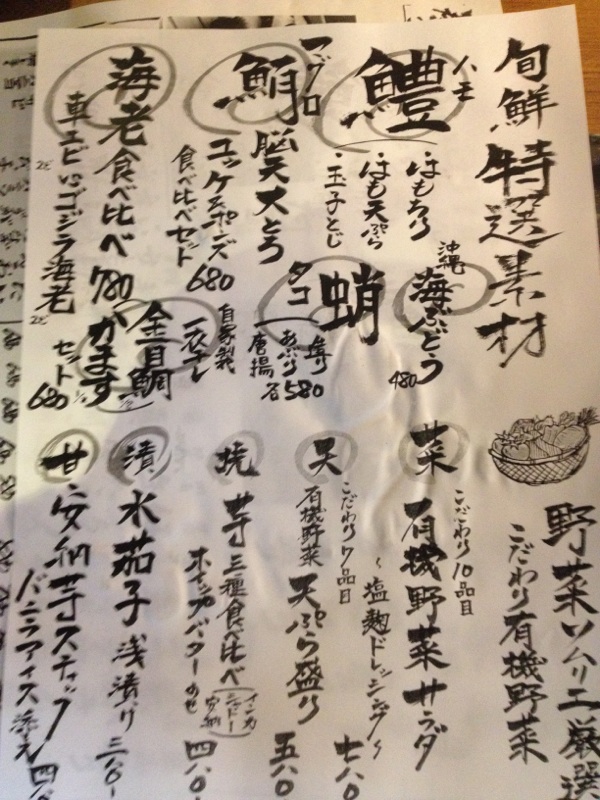 旬鮮特選素材
ハモ
鱧
・はもちり
・はも天ぷら
・玉子とじ
沖縄
海ぶどう
480
マグロ
鮪
脳天大とろ
ユッケ&ポンズ
食べ比べセット
680
タコ
蛸
あぶり
唐揚
各580
海老食べ比べ
780
車エビvsゴジラ海老
自家製
一夜干し
金目鯛
かます
セット
680
野菜ソムリエ厳選
こだわり有機野菜
菜
こだわり10品目
有機野菜サラダ
〜塩麹ドレッシング〜
七八〇
天
こだわり7品目
有機野菜
天ぷら盛り
五八〇
焼
芋三種食べ比べ
インカ
シャドー
安納
ホイップバターのせ
四八〇-
漬
水茄子浅漬け
三八〇-
甘
安納芋スティック
バニラアイス添え
四八